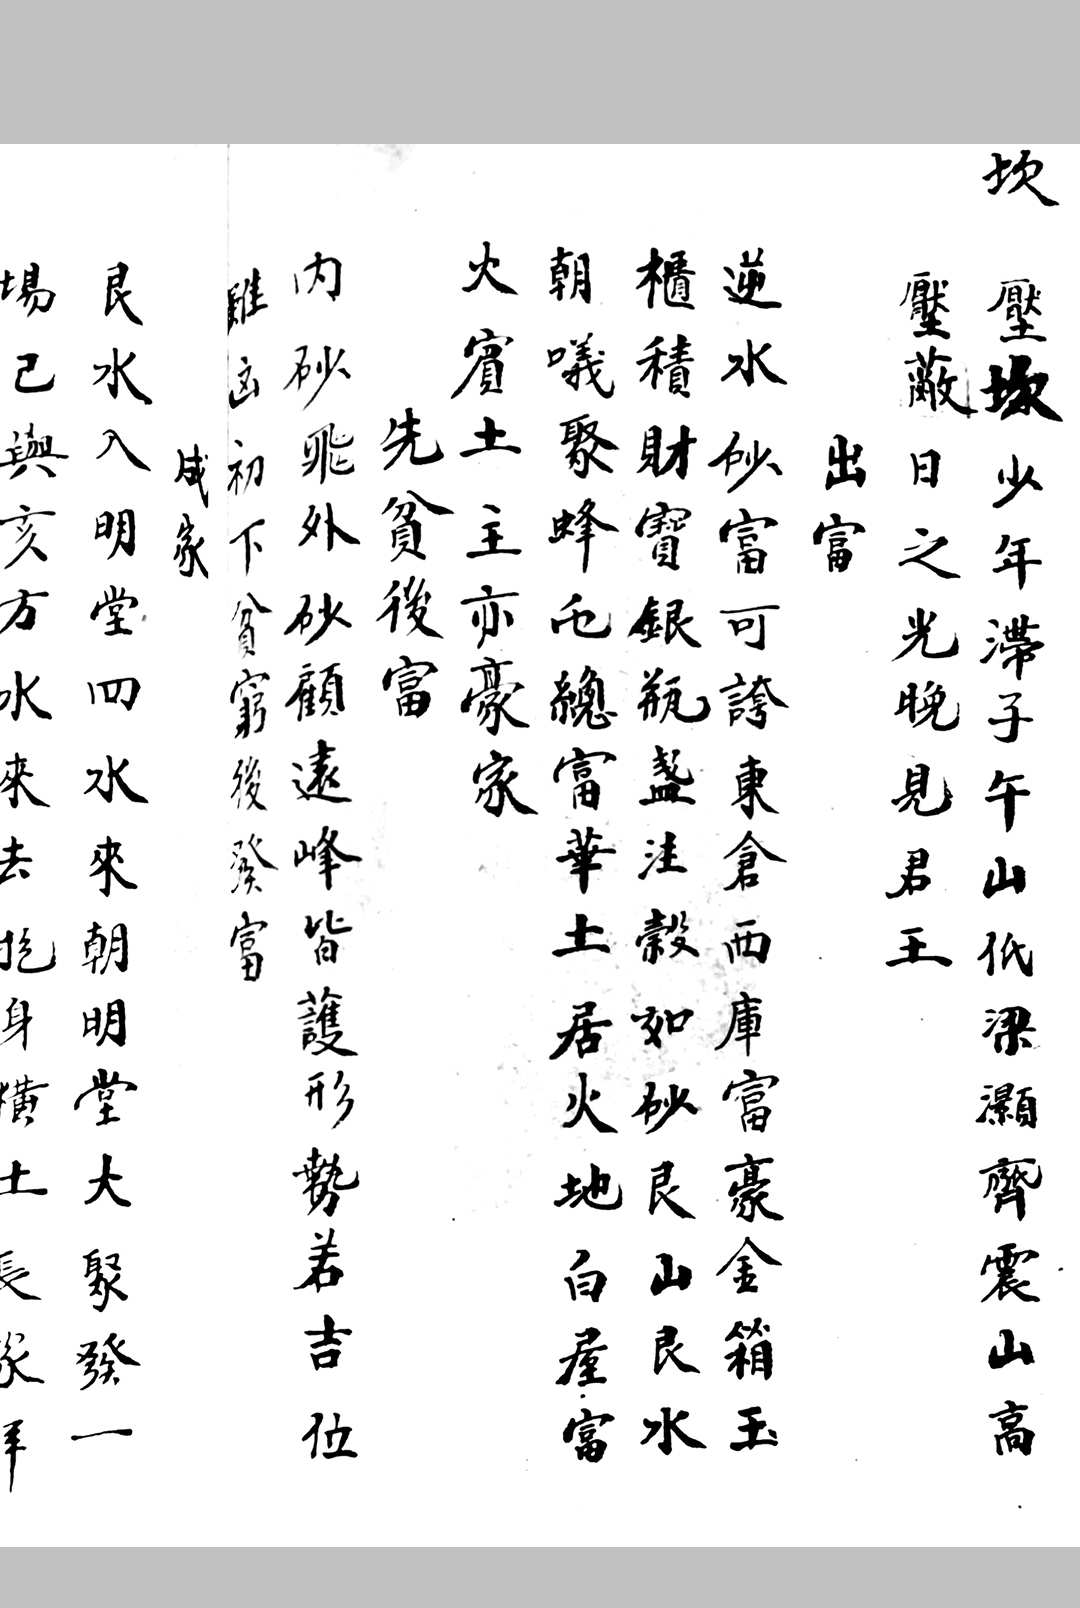 坎 壓坎少年滯子午山低梁灝齊震山高
壓蔽日之光晚見君王
出富
逆水砂富可誇東倉西庫富豪金箱玉
櫃積財寶銀瓶盞注穀如砂艮山艮水
朝嚱聚蜂屯總富華土居火地白屋富
火賓土主亦豪家
先貧後富
內砂飛外砂顧遠峰皆護形勢若吉位
雖凶初下貧窮後發富
成家
艮水入明堂四水來朝明堂大聚發一
場己與亥方水來去抱身橫土長家拜